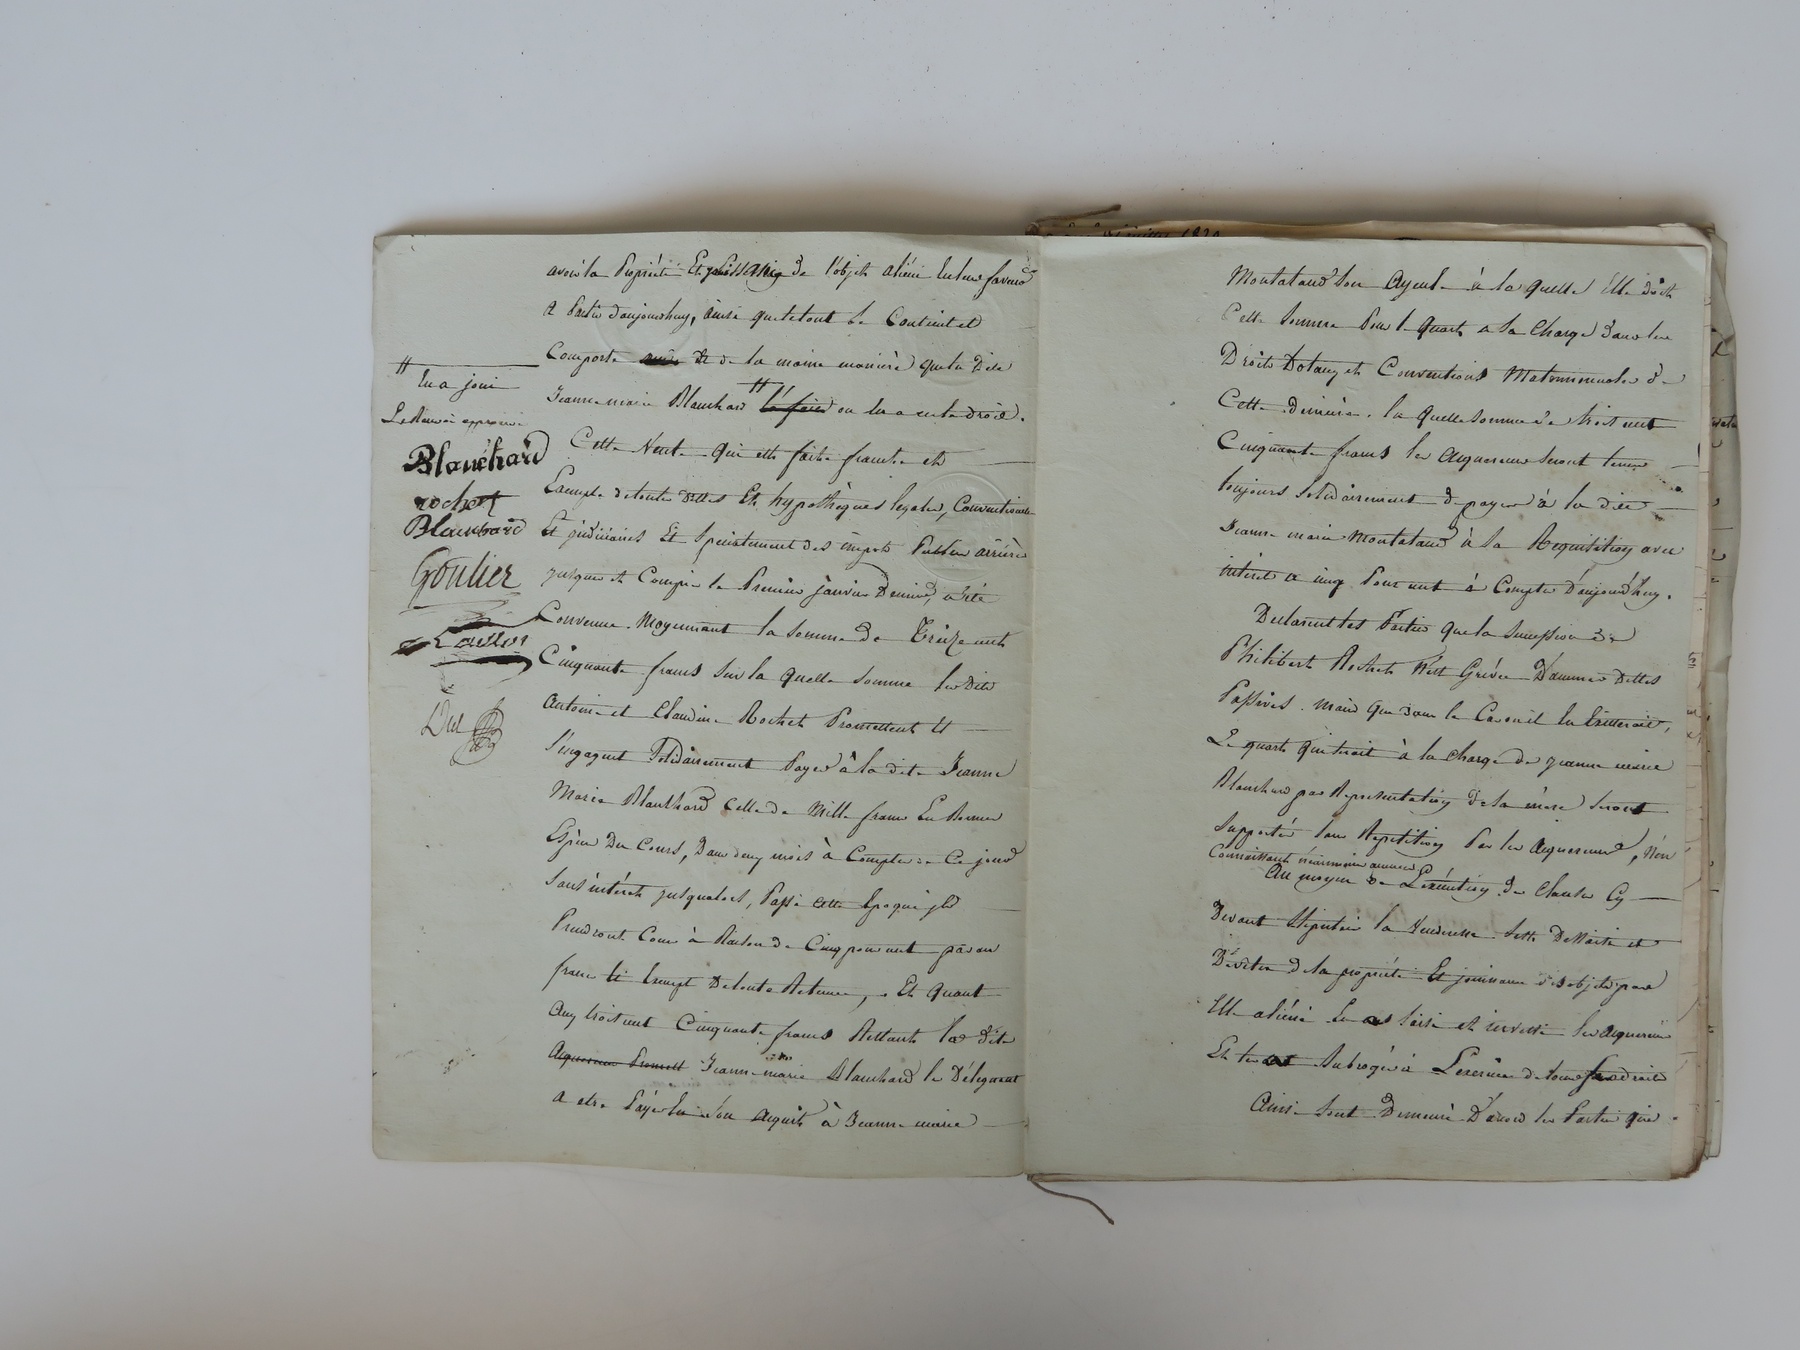 avoir la Propriété Et jouissance de l'objet aliéné En leur faveur
a Partir d'aujourd'huy, ainsi que le tout se Contient et
Comporte et de la maime manière que la Dite
Jeanne marie Blanchard l'a fait ou en a eu le droit.
Cette Vente qui est faite franche et
Exempte de toutes dettes Et hypothèques legales, Conventionelles
Et judiciaires Et Specialement des impots Passés arriérés
jusques et Compris le Premier janvier Dernier, a été
Convenue Moyennant la Somme de Treize cents
Cinquante francs Sur la quelle Somme les Dits
Antoine et Claudine Rochet Promettent Et
S'engagent Solidairement Payer à la dite Jeanne
Marie Blanchard Celle de Mille francs En Bonnes
Espèces Du Cours, Dans deux mois à Compter de Ce jour
Sans intérêt jusqu'alors, Passé cette Epoque ils
Prendront Cour à Raison de Cinq pour cent par an
franc Et Exempt De toute Retenue, Et Quant
Aux trois cent Cinquante francs Restants la dite
Acquereurs Promett Jeanne marie Blanchard les Déléguent
a etre Payés En Son Acquit à Jeanne marie
En a joui
Le Renvoi approuvé
Blanchard
rochet
Blanchard
Goulier
Dul
juillet 1820
Montatand Son Ayeule à la quelle Elle doit
Cette Somme Pour le Quart a Sa Charge Dans les
Droits Dotaux et Conventions Matrimoniales de
Cette Derniere. la quelle Somme de trois cent
Cinquante francs les Acquereurs Seront tenus
toujours Solidairement de payer à la dite
Jeanne marie Montatand à Sa Requisition avec
intérêt a cinq Pour cent à Compter D'aujourd'huy.
Declarent les Parties que la Succession de
Philibert Rochet N'est Grévée D'aucunes Dettes
Passives. Mais que dans le Cas où il En Existerait,
Le quart qui serait à la charge de jeanne marie
Blanchard par Representation de Sa mère Seront
Supportés Sans Repetition Par les Acquereurs, N'en
Connaissant néanmoins aucunes
Au moyen de L'exécution des Clauses Cy
Devant Stipulées la Venderesse S'est Dessaisie et
Dévétue de la propriété Et jouissance des objets par
Elle aliénés En a Saisi et investi les Acquereurs
Et les a Subrogés à L'exercice de tous ses droits
Ainsi Sont Demeurés D'accord les Parties qui